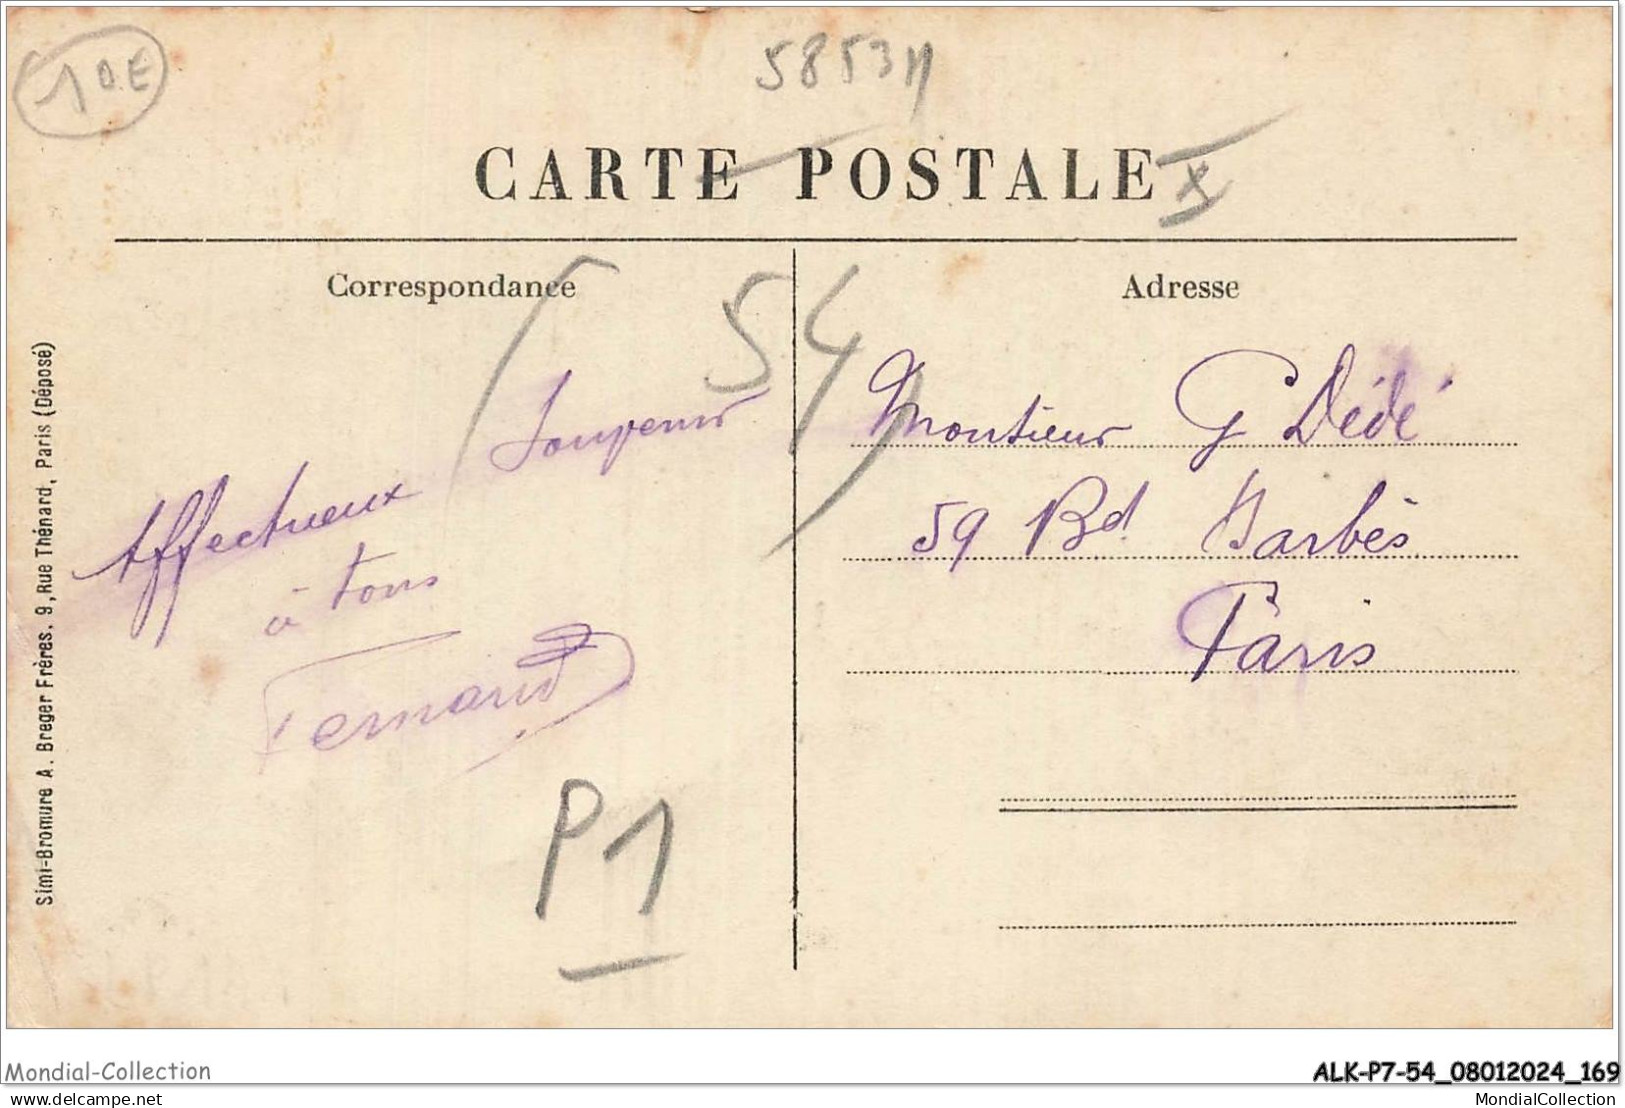 10E
5853M
CARTE POSTALE
X
Correspondance
54
Adresse
Affectueux Souvenir
à tous
Fernand
Monsieur G Dédé
59 Bd Barbès
Paris
P1
Simi-Bromure A. Breger Frères. 9, Rue Thénard, Paris (Déposé)
Mondial-Collection
ALK-P7-54_08012024_169
MondialCollection
MondialCollection